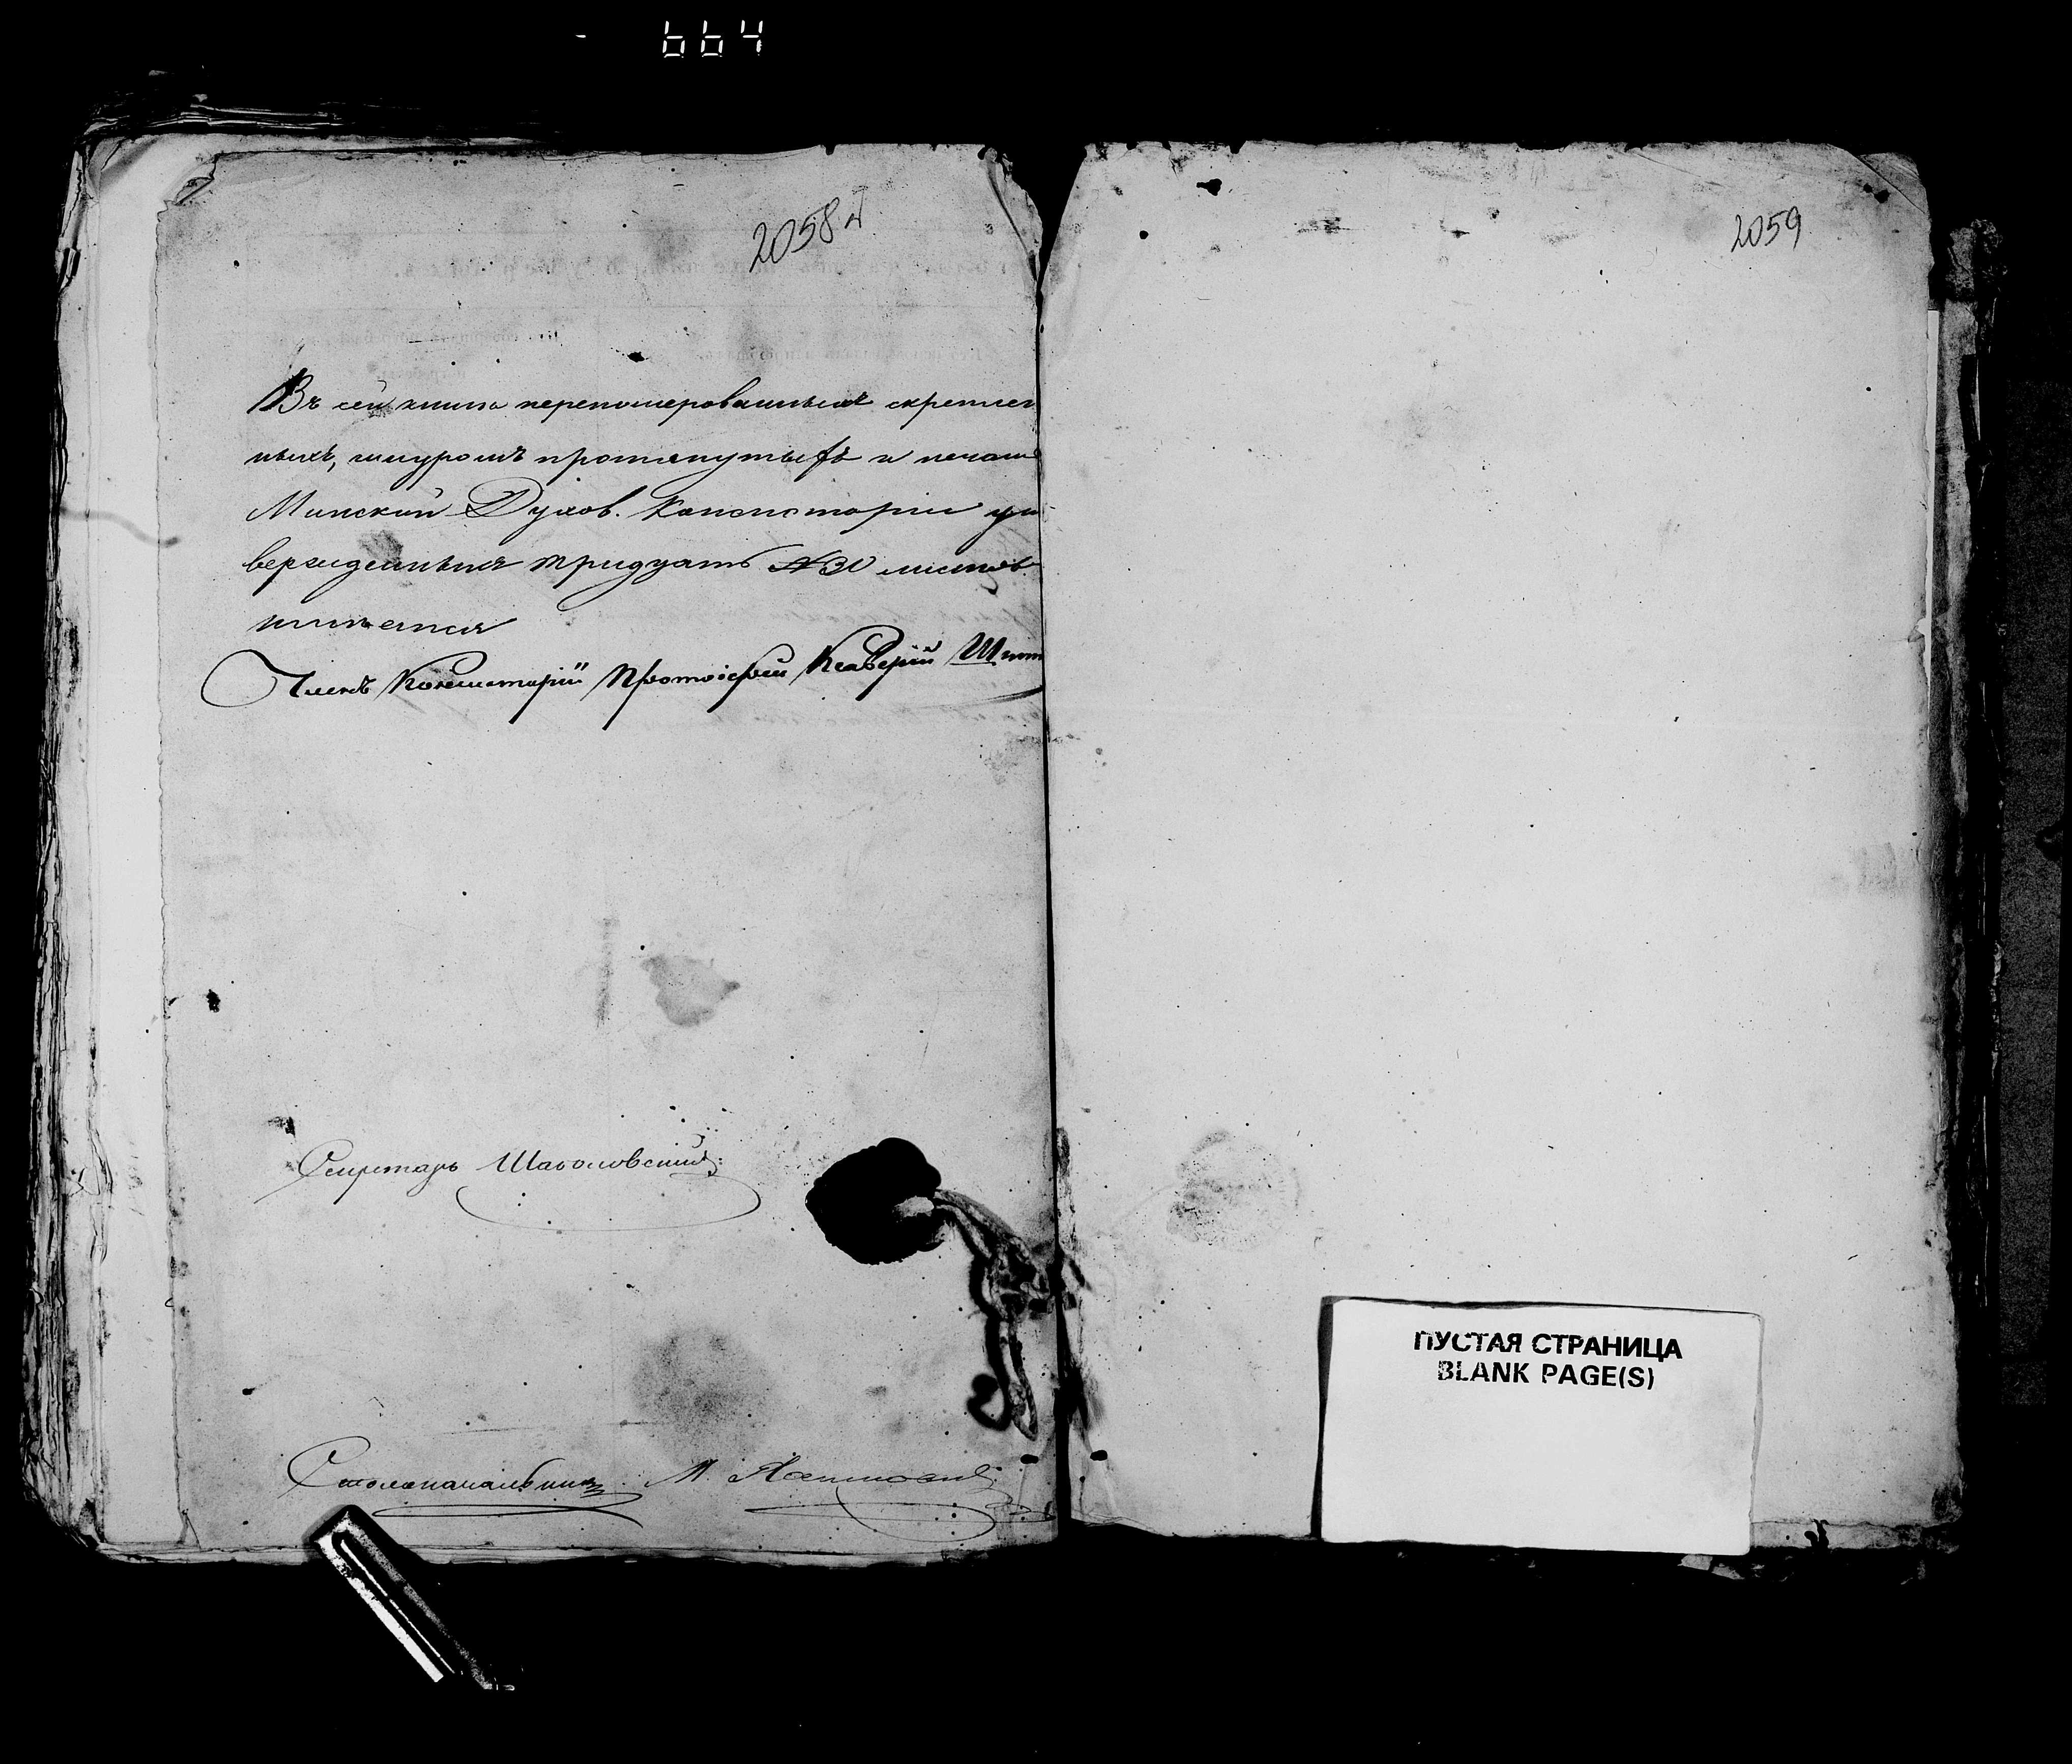 664
2058
2059
Въ сей книгѣ перенумерованныхъ скреплен
ныхъ, шнуромъ протянутыхъ и печат
Минской Духов. Консисторіи ут
вержденныхъ тридцать №30 листовъ
имѣется
Членъ Консисторіи Протоіерей
Секретарь
Столоначальникъ М.
ПУСТАЯ СТРАНИЦА
BLANK PAGE(S)